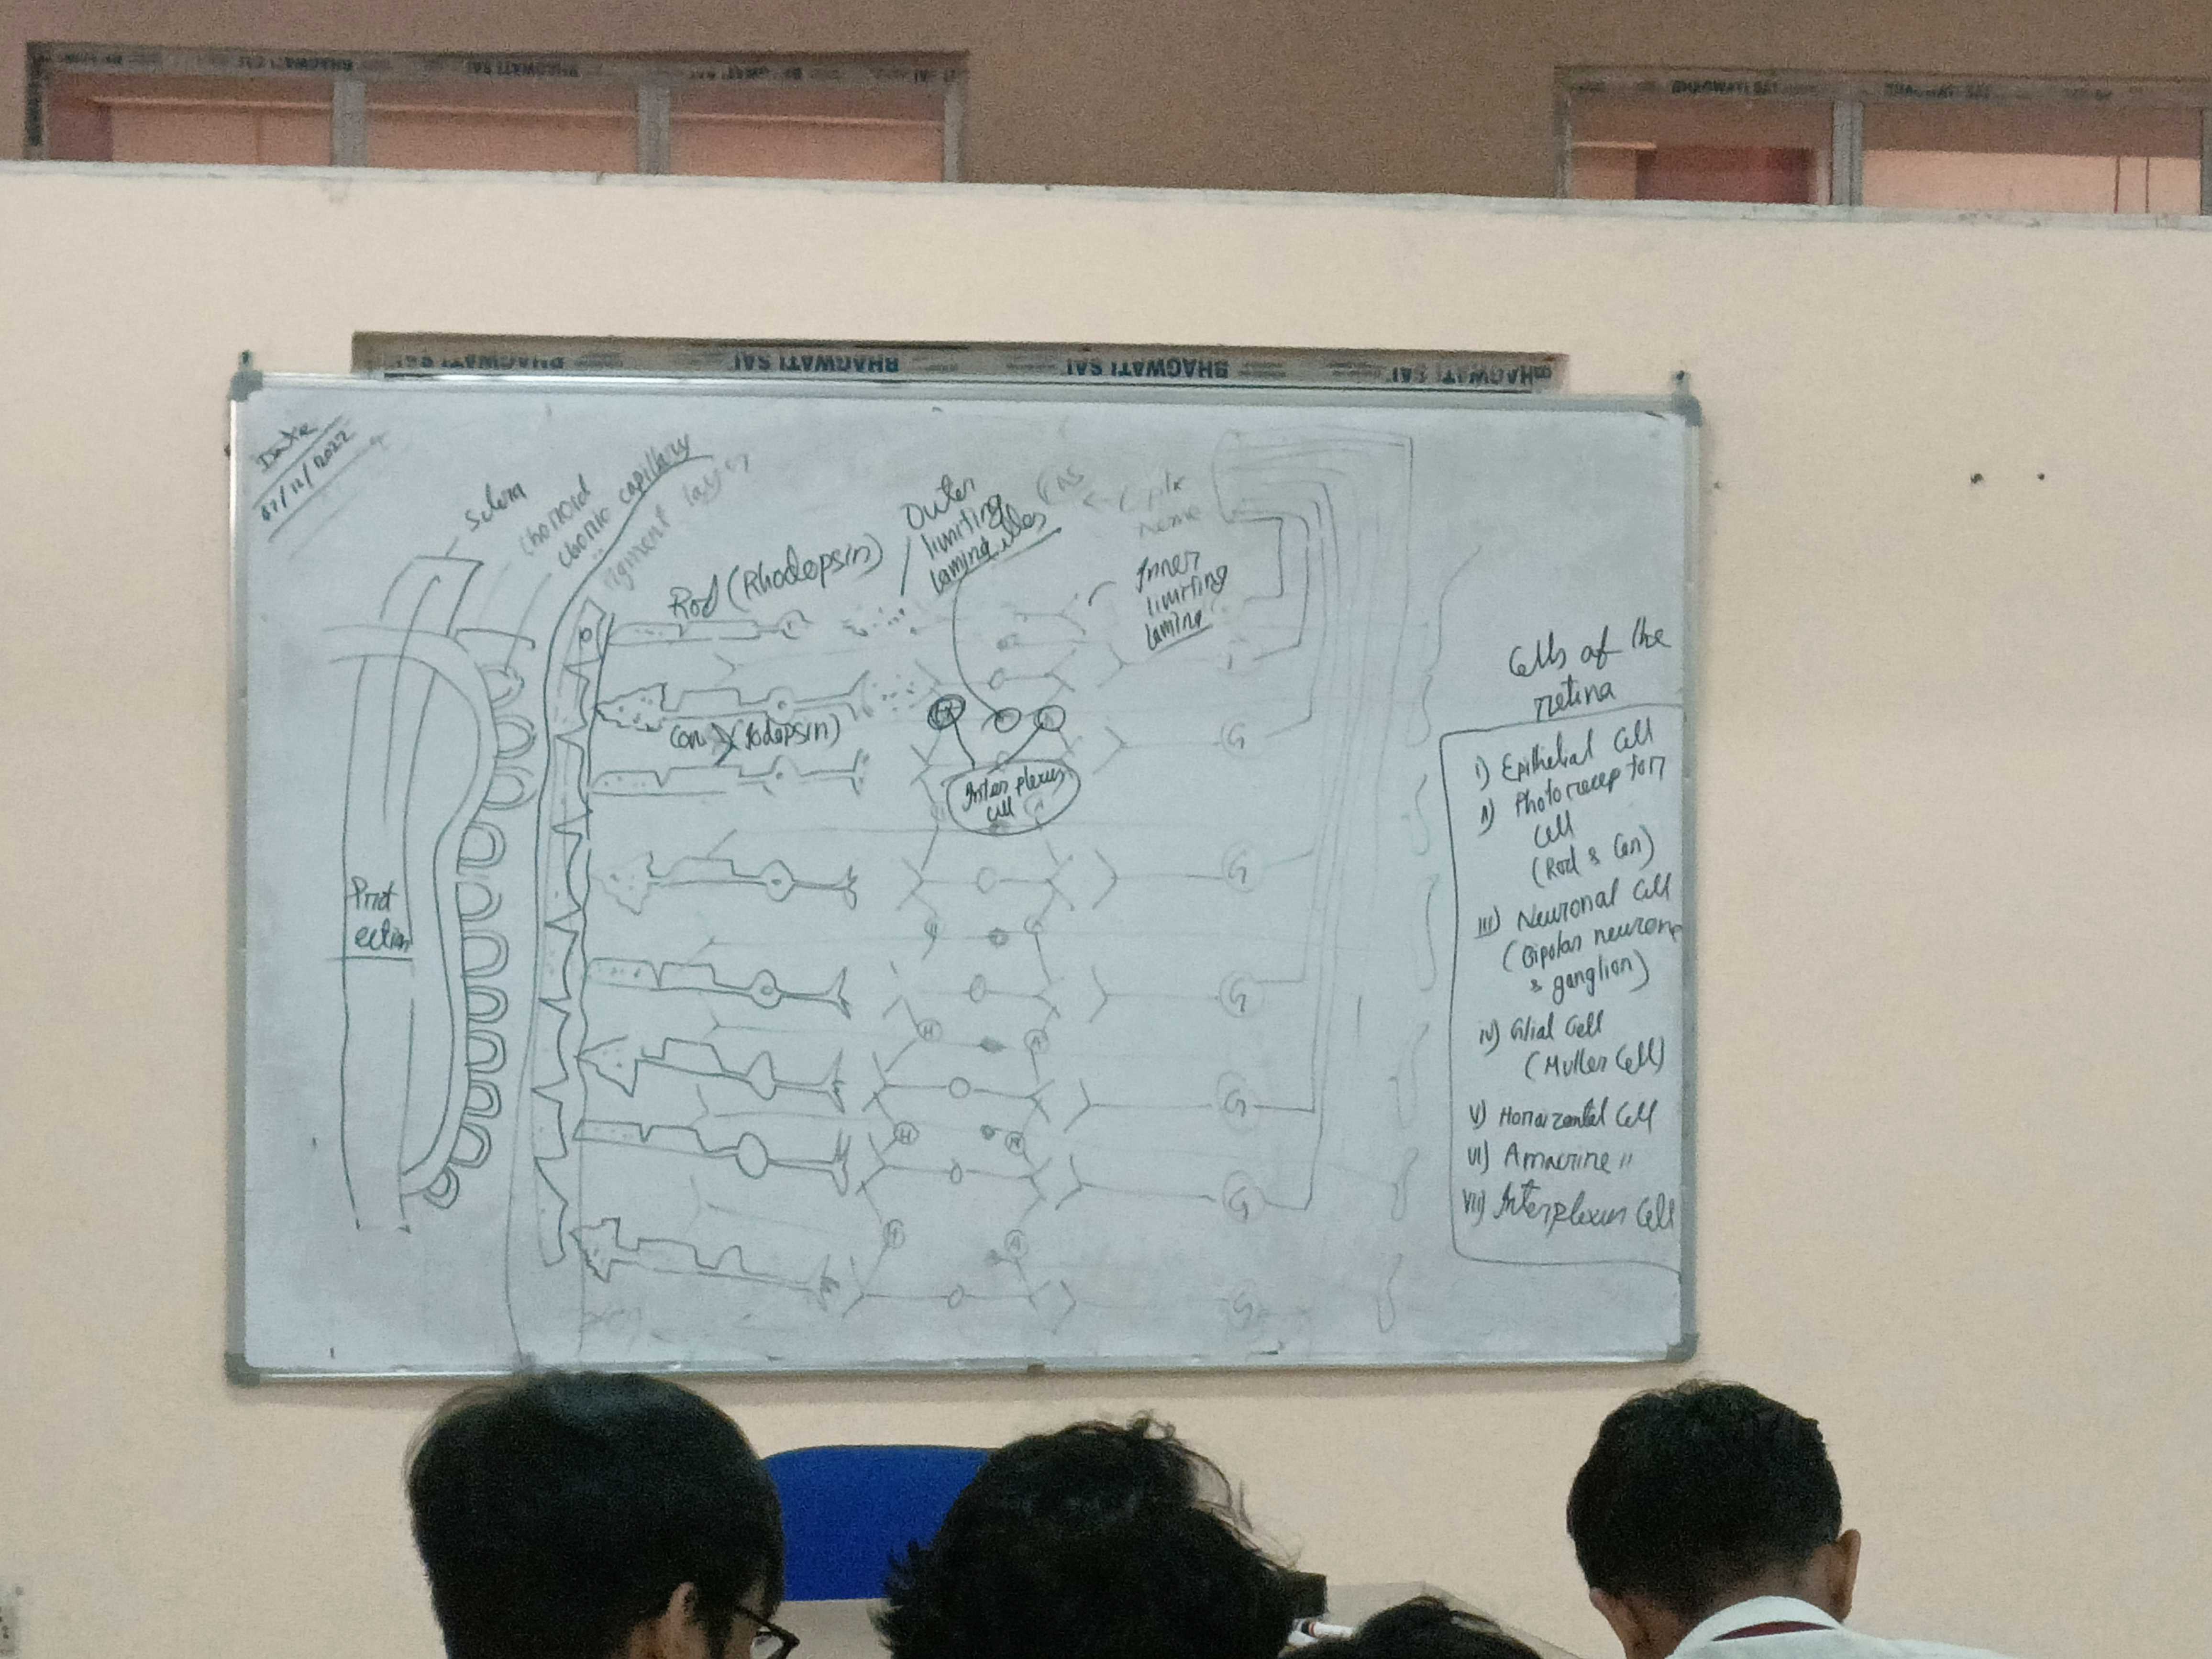 BHAGWATI SAI
BHAGWATI SAI
BHAGWATI SAI
BHAGWATI SAI
BHAGWATI SAI
BHAGWATI SAI
BHAGWATI SAI
Date
07/12/2022
Sclera
Choroid
Chorio capillary
Pigment layer
Rod (Rhodopsin)
Outer
limiting
lamina
Optic
nerve
Inner
limiting
lamina
Con (Iodopsin)
Inter plexus
cell
Prot
ection
G
G
G
G
G
G
H
A
H
A
H
A
Cells of the
retina
i) Epithelial Cell
ii) Photoreceptor
Cell
(Rod & Con)
iii) Neuronal Cell
(Bipolar neurone
& ganglion)
iv) Glial Cell
(Muller Cell)
v) Horizontal Cell
vi) Amacrine "
vii) Interplexus Cell